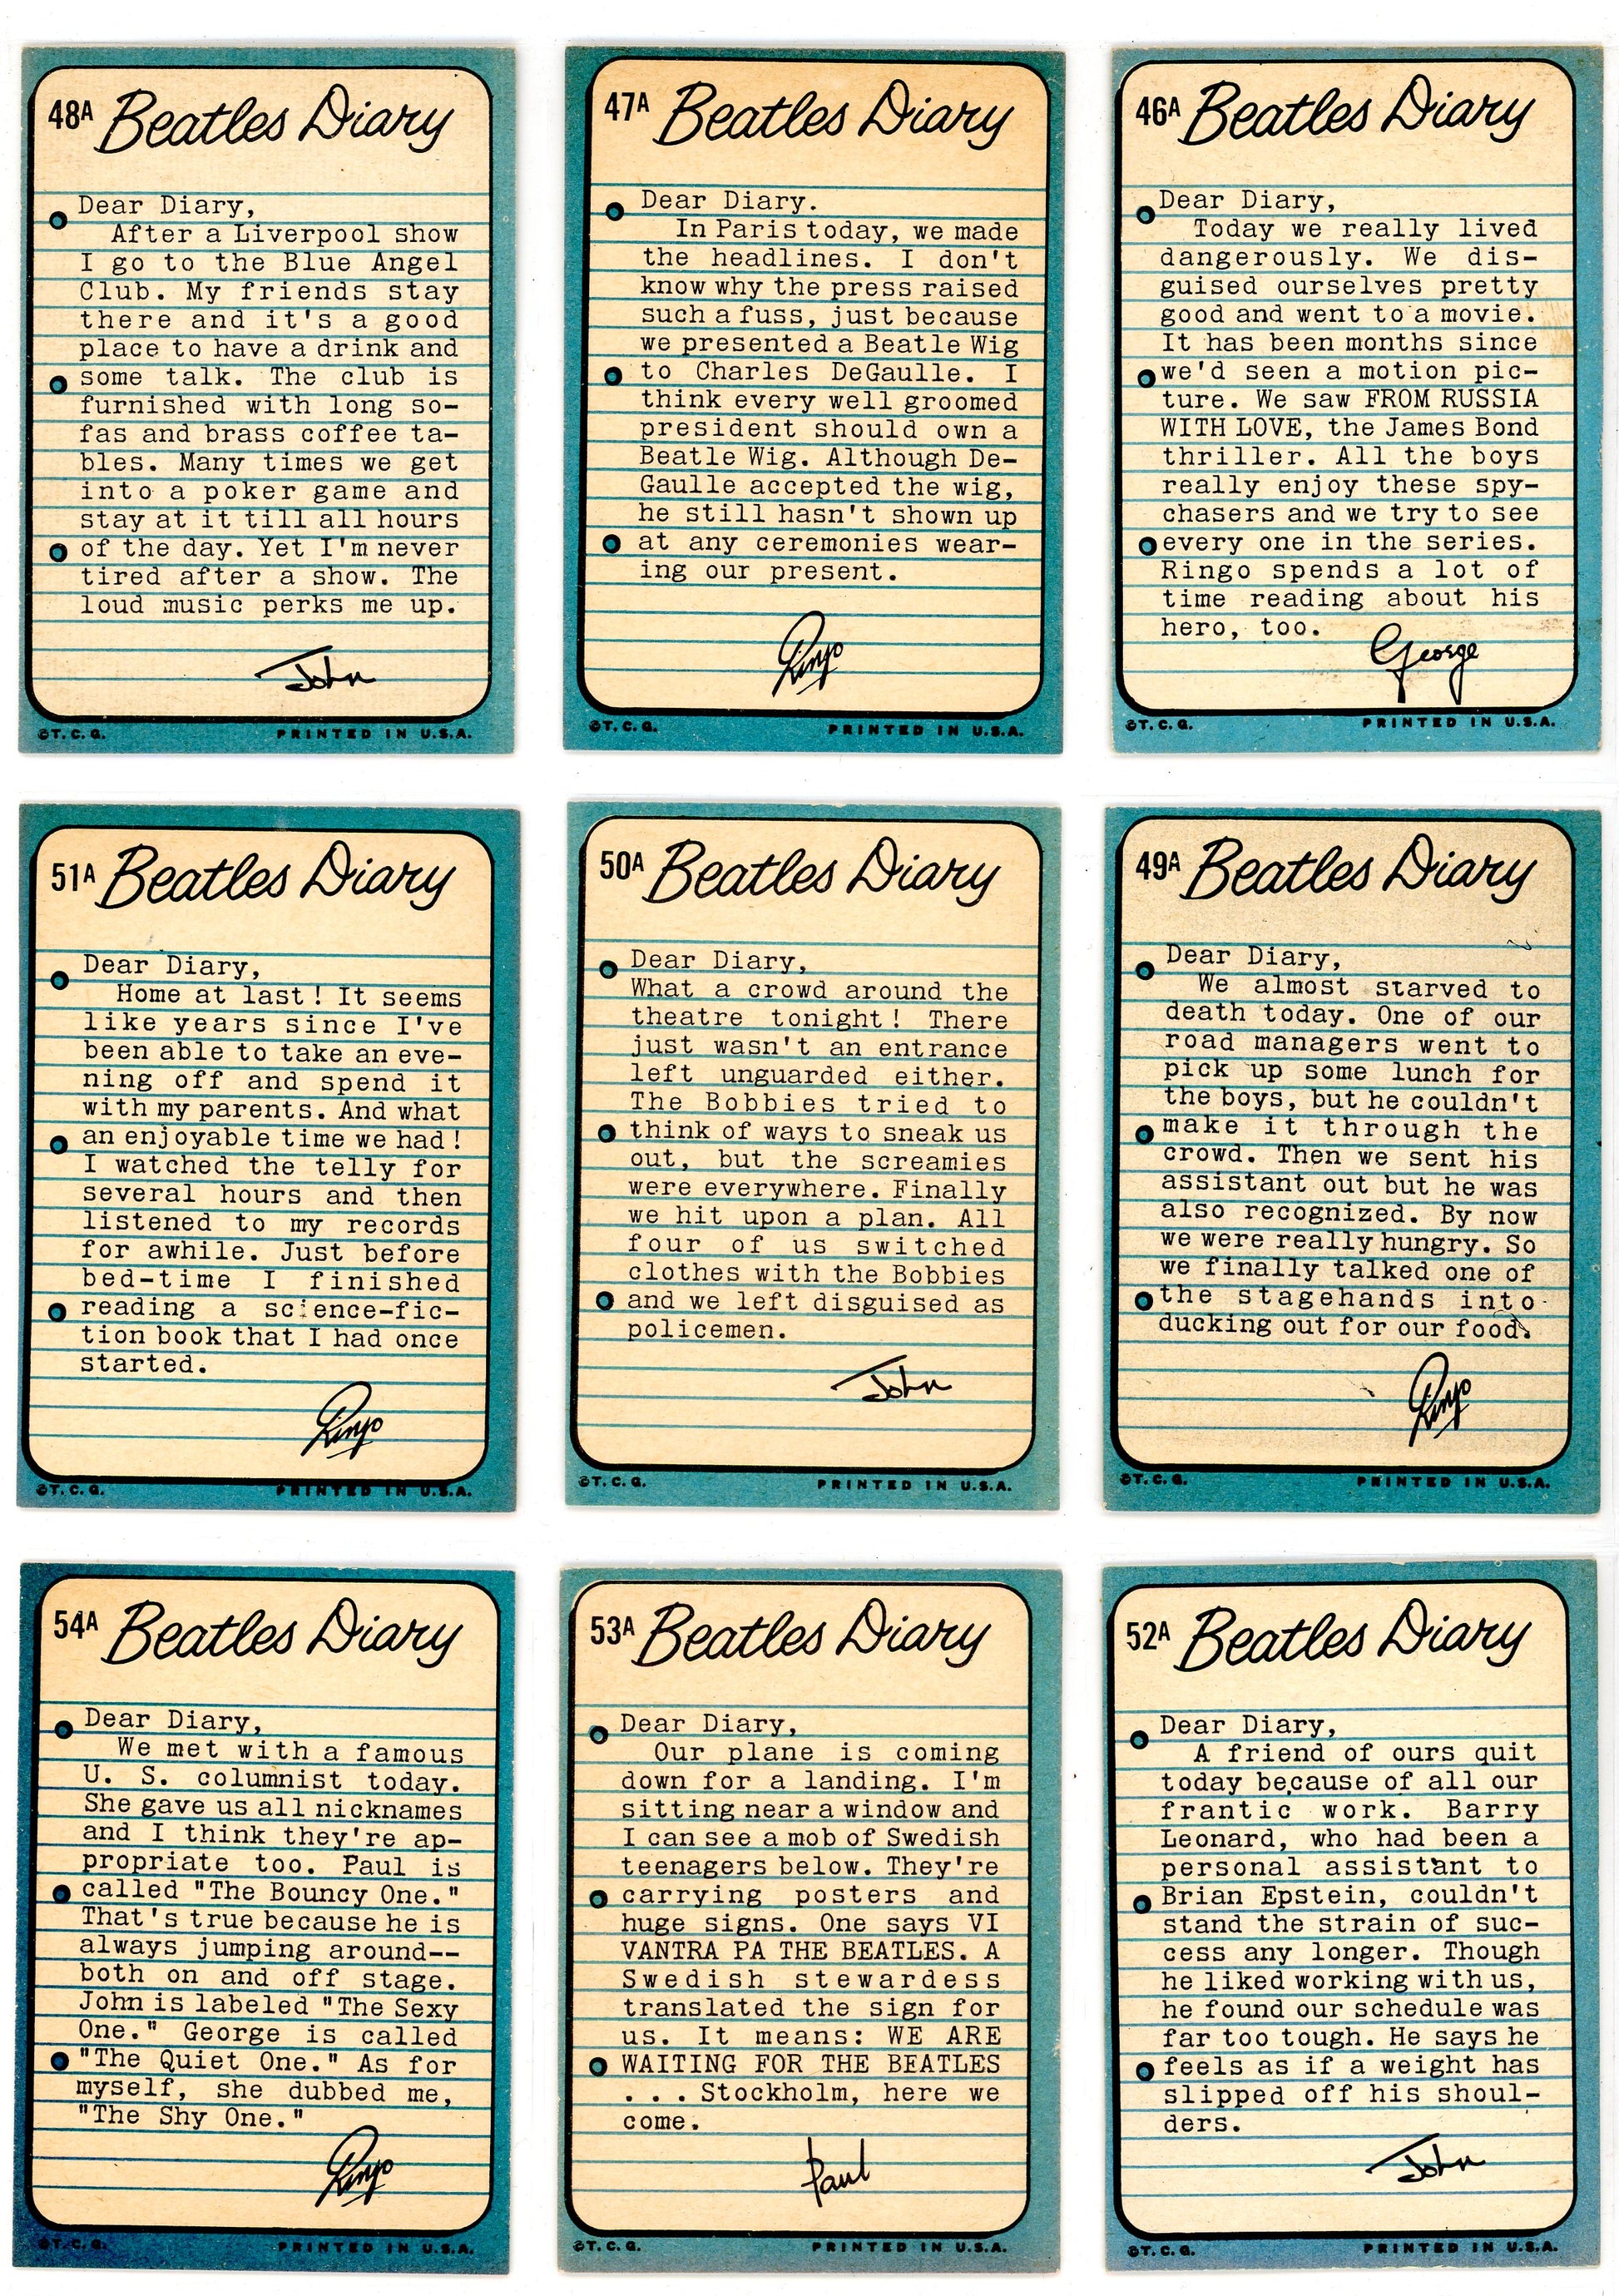 48A Beatles Diary
Dear Diary,
After a Liverpool show
I go to the Blue Angel
Club. My friends stay
there and it's a good
place to have a drink and
some talk. The club is
furnished with long so-
fas and brass coffee ta-
bles. Many times we get
into a poker game and
stay at it till all hours
of the day. Yet I'm never
tired after a show. The
loud music perks me up.
John
©T.C.G. PRINTED IN U.S.A.
47A Beatles Diary
Dear Diary.
In Paris today, we made
the headlines. I don't
know why the press raised
such a fuss, just because
we presented a Beatle Wig
to Charles DeGaulle. I
think every well groomed
president should own a
Beatle Wig. Although De-
Gaulle accepted the wig,
he still hasn't shown up
at any ceremonies wear-
ing our present.
Ringo
©T.C.G. PRINTED IN U.S.A.
46A Beatles Diary
Dear Diary,
Today we really lived
dangerously. We dis-
guised ourselves pretty
good and went to a movie.
It has been months since
we'd seen a motion pic-
ture. We saw FROM RUSSIA
WITH LOVE, the James Bond
thriller. All the boys
really enjoy these spy-
chasers and we try to see
every one in the series.
Ringo spends a lot of
time reading about his
hero, too.
George
©T.C.G. PRINTED IN U.S.A.
51A Beatles Diary
Dear Diary,
Home at last! It seems
like years since I've
been able to take an eve-
ning off and spend it
with my parents. And what
an enjoyable time we had!
I watched the telly for
several hours and then
listened to my records
for awhile. Just before
bed-time I finished
reading a science-fic-
tion book that I had once
started.
Ringo
©T.C.G. PRINTED IN U.S.A.
50A Beatles Diary
Dear Diary,
What a crowd around the
theatre tonight! There
just wasn't an entrance
left unguarded either.
The Bobbies tried to
think of ways to sneak us
out, but the screamies
were everywhere. Finally
we hit upon a plan. All
four of us switched
clothes with the Bobbies
and we left disguised as
policemen.
John
©T.C.G. PRINTED IN U.S.A.
49A Beatles Diary
Dear Diary,
We almost starved to
death today. One of our
road managers went to
pick up some lunch for
the boys, but he couldn't
make it through the
crowd. Then we sent his
assistant out but he was
also recognized. By now
we were really hungry. So
we finally talked one of
the stagehands into
ducking out for our food.
Ringo
©T.C.G. PRINTED IN U.S.A.
54A Beatles Diary
Dear Diary,
We met with a famous
U. S. columnist today.
She gave us all nicknames
and I think they're ap-
propriate too. Paul is
called "The Bouncy One."
That's true because he is
always jumping around--
both on and off stage.
John is labeled "The Sexy
One." George is called
"The Quiet One." As for
myself, she dubbed me,
"The Shy One."
Ringo
©T.C.G. PRINTED IN U.S.A.
53A Beatles Diary
Dear Diary,
Our plane is coming
down for a landing. I'm
sitting near a window and
I can see a mob of Swedish
teenagers below. They're
carrying posters and
huge signs. One says VI
VANTRA PA THE BEATLES. A
Swedish stewardess
translated the sign for
us. It means: WE ARE
WAITING FOR THE BEATLES
...Stockholm, here we
come.
Paul
©T.C.G. PRINTED IN U.S.A.
52A Beatles Diary
Dear Diary,
A friend of ours quit
today because of all our
frantic work. Barry
Leonard, who had been a
personal assistant to
Brian Epstein, couldn't
stand the strain of suc-
cess any longer. Though
he liked working with us,
he found our schedule was
far too tough. He says he
feels as if a weight has
slipped off his shoul-
ders.
John
©T.C.G. PRINTED IN U.S.A.